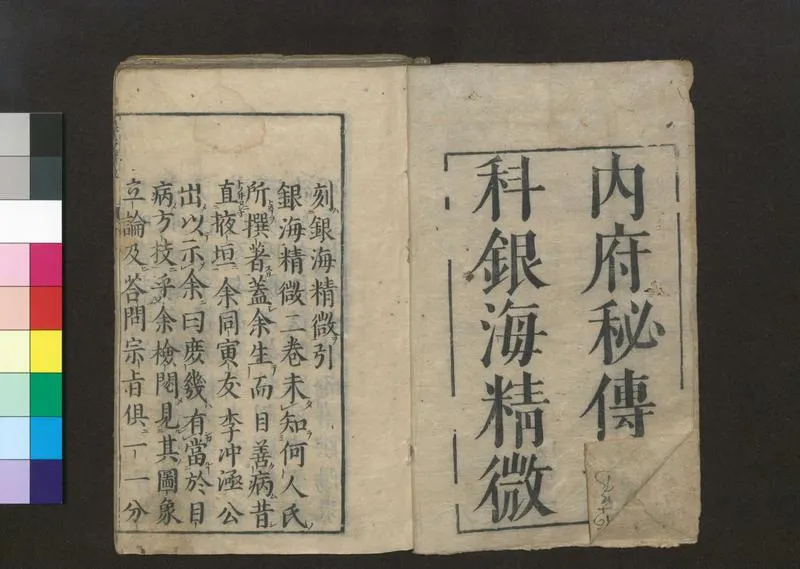 内府秘傳
科銀海精微
刻銀海精微引
銀海精微二卷未知何人氏
所撰著蓋余生而目善病昔
直掖垣余同寅友李冲涵公
出以示余曰庶幾有當於目
病方技乎余檢閱見其圖象
立論及荅問宗旨俱一一分